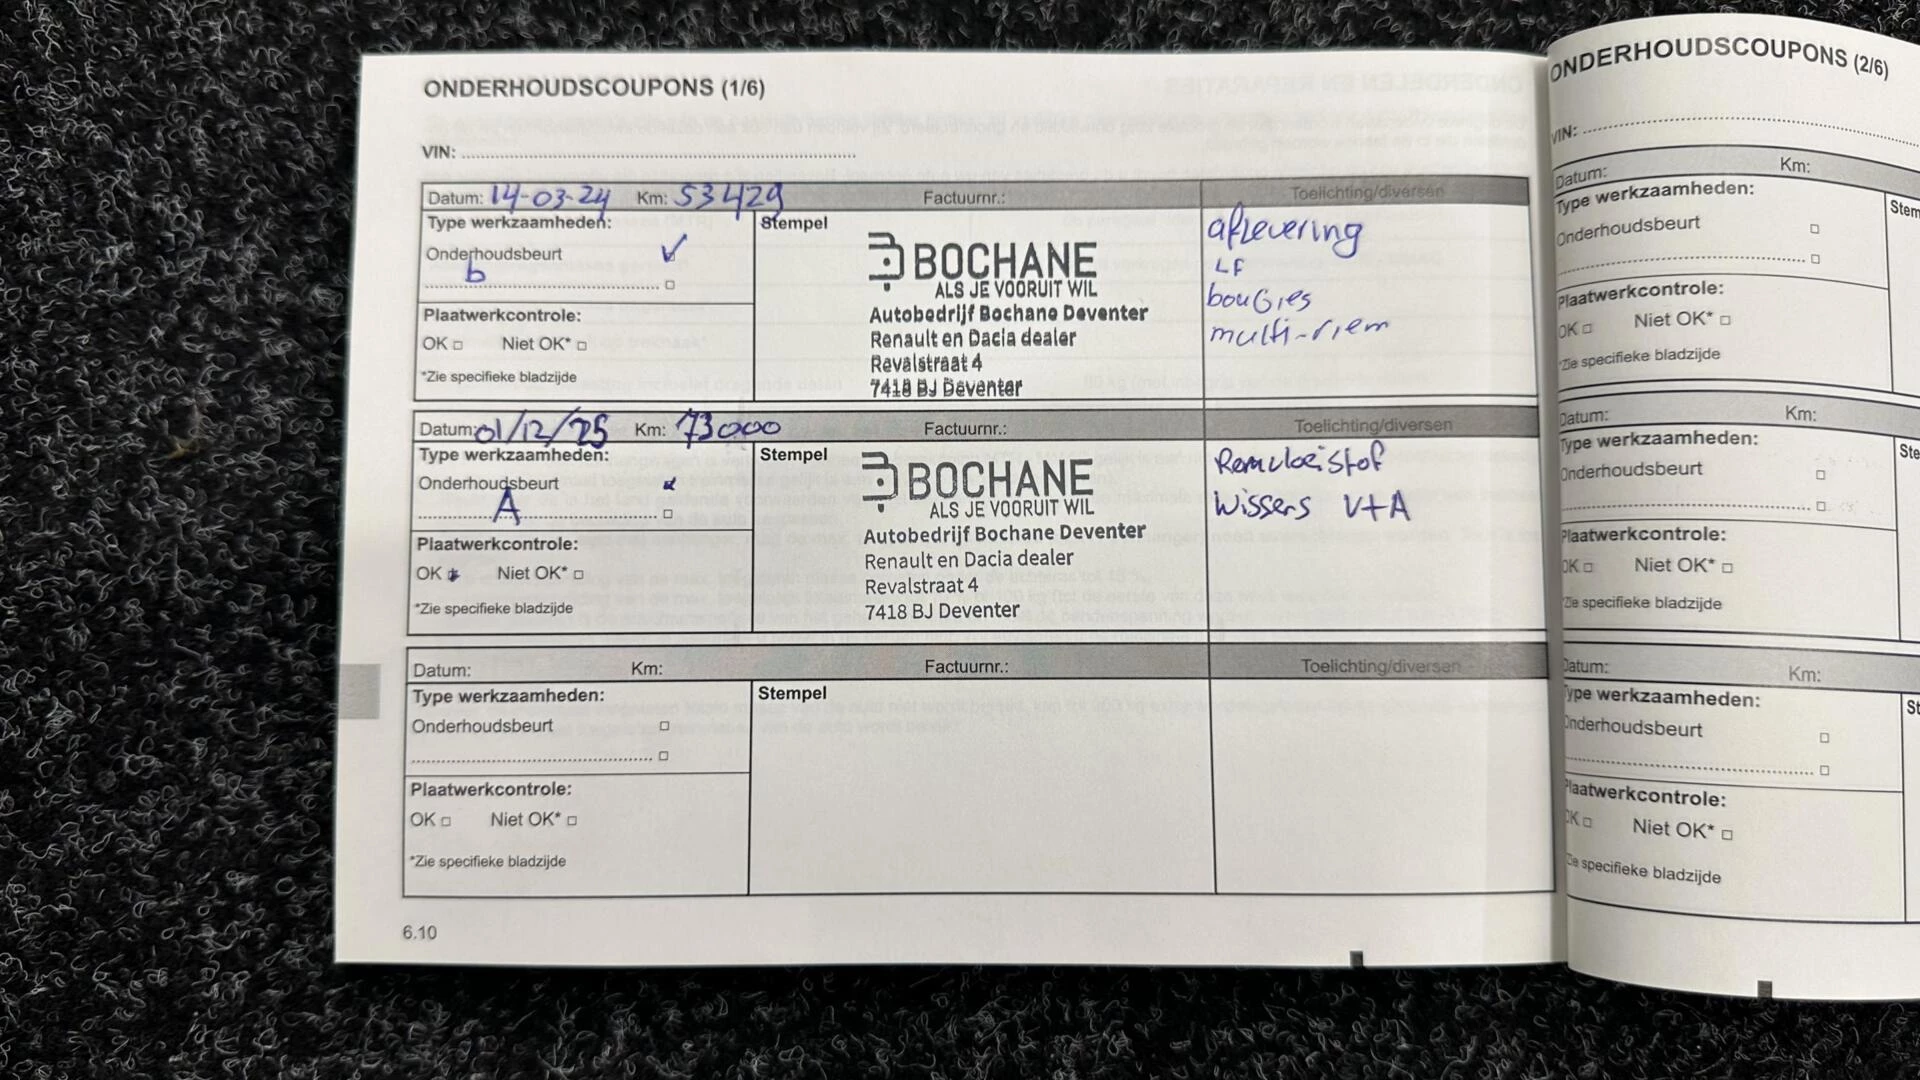 ONDERHOUDSCOUPONS (1/6)
VIN:
Datum: 14-03-24 Km: 53429 Factuurnr.: Toelichting/diversen
Type werkzaamheden:
Onderhoudsbeurt ✓
b □
Plaatwerkcontrole:
OK □ Niet OK* □
*Zie specifieke bladzijde
Stempel
BOCHANE
ALS JE VOORUIT WIL
Autobedrijf Bochane Deventer
Renault en Dacia dealer
Revalstraat 4
7418 BJ Deventer
aflevering
LF
bouGies
multi-riem
Datum: 01/12/25 Km: 73000 Factuurnr.: Toelichting/diversen
Type werkzaamheden:
Onderhoudsbeurt
A □
Plaatwerkcontrole:
OK Niet OK* □
*Zie specifieke bladzijde
Stempel
BOCHANE
ALS JE VOORUIT WIL
Autobedrijf Bochane Deventer
Renault en Dacia dealer
Revalstraat 4
7418 BJ Deventer
Remvloeistof
Wissers V+A
Datum: Km: Factuurnr.: Toelichting/diversen
Type werkzaamheden:
Onderhoudsbeurt □
□
Plaatwerkcontrole:
OK □ Niet OK* □
*Zie specifieke bladzijde
Stempel
6.10
ONDERHOUDSCOUPONS (2/6)
VIN:
Datum: Km:
Type werkzaamheden:
Onderhoudsbeurt □
□
Plaatwerkcontrole:
OK □ Niet OK* □
*Zie specifieke bladzijde
Stem
Datum: Km:
Type werkzaamheden:
Onderhoudsbeurt □
□
Plaatwerkcontrole:
OK □ Niet OK* □
*Zie specifieke bladzijde
Ste
Datum: Km:
Type werkzaamheden:
Onderhoudsbeurt □
□
Plaatwerkcontrole:
OK □ Niet OK* □
*Zie specifieke bladzijde
St